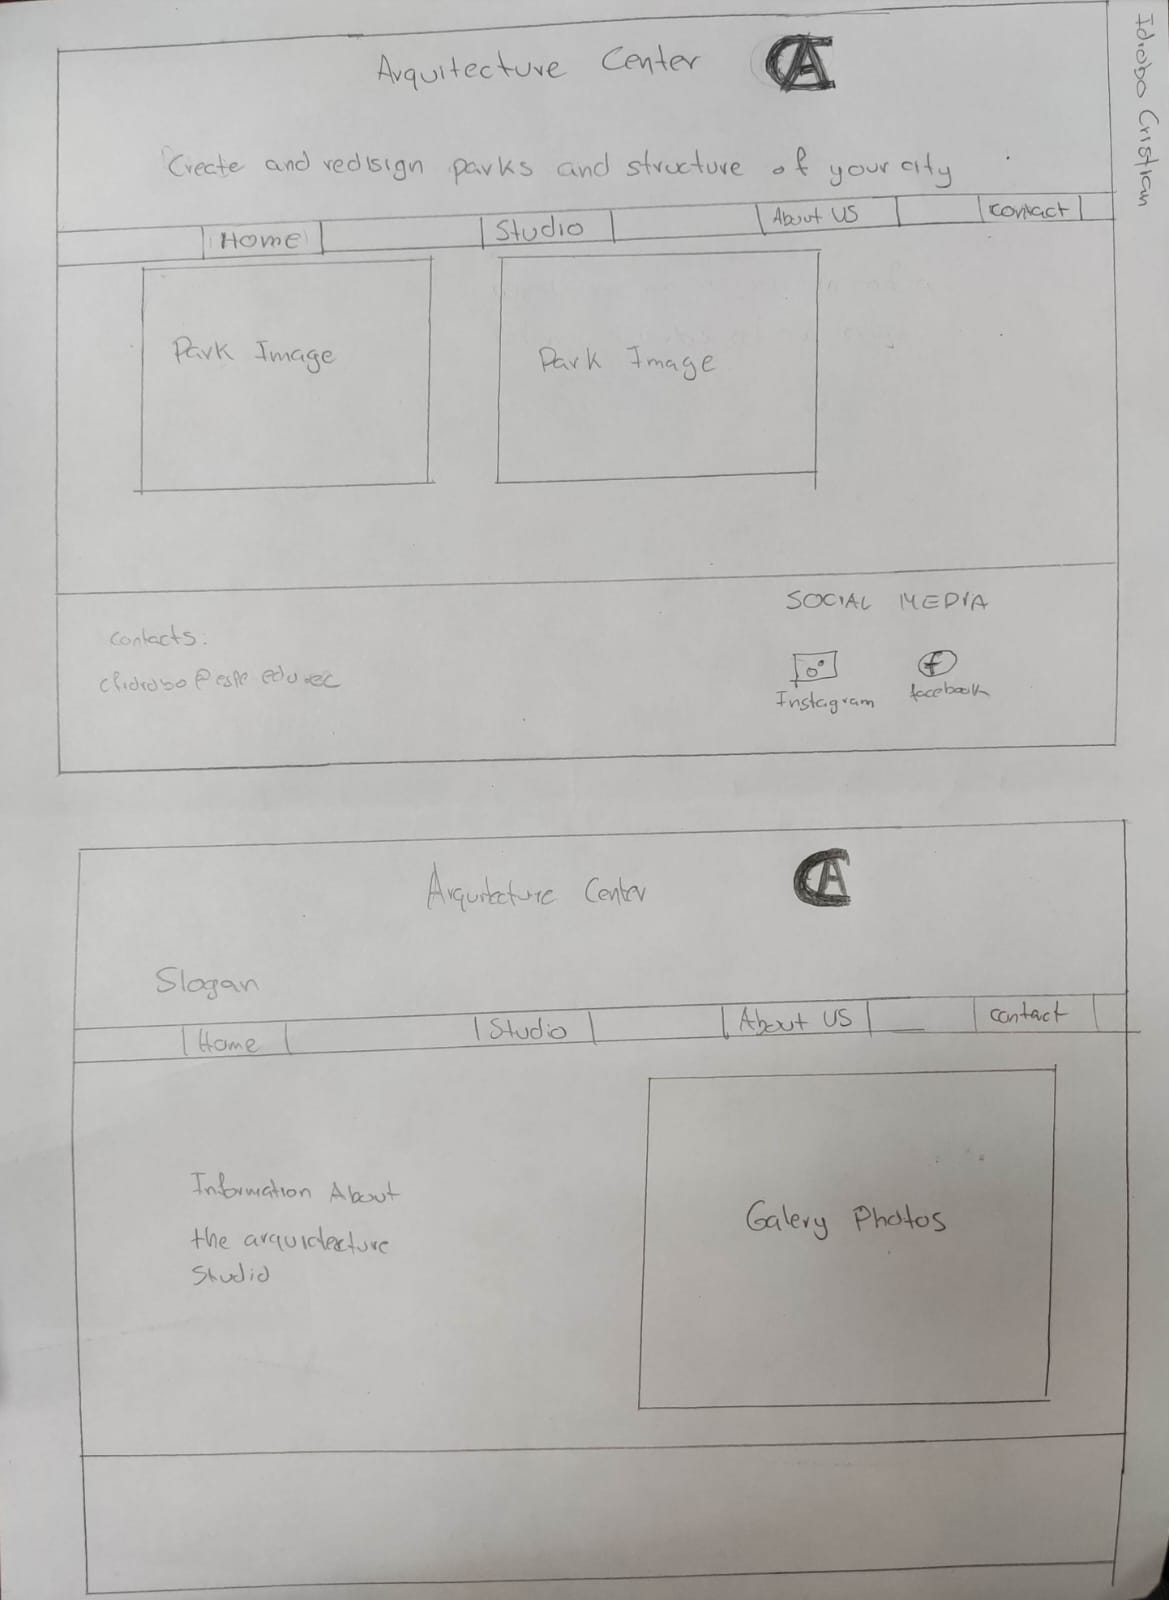 Idrobo Cristian
Arquitecture Center CA
Create and redisign parks and structure of your city
Home Studio About US Contact
Park Image Park Image
SOCIAL MEDIA
contacts:
cfidrobo@espe.edu.ec
Instagram facebook
Arquitecture Center CA
Slogan
Home Studio About US Contact
Information About
the arquidecture
Studio
Galery Photos